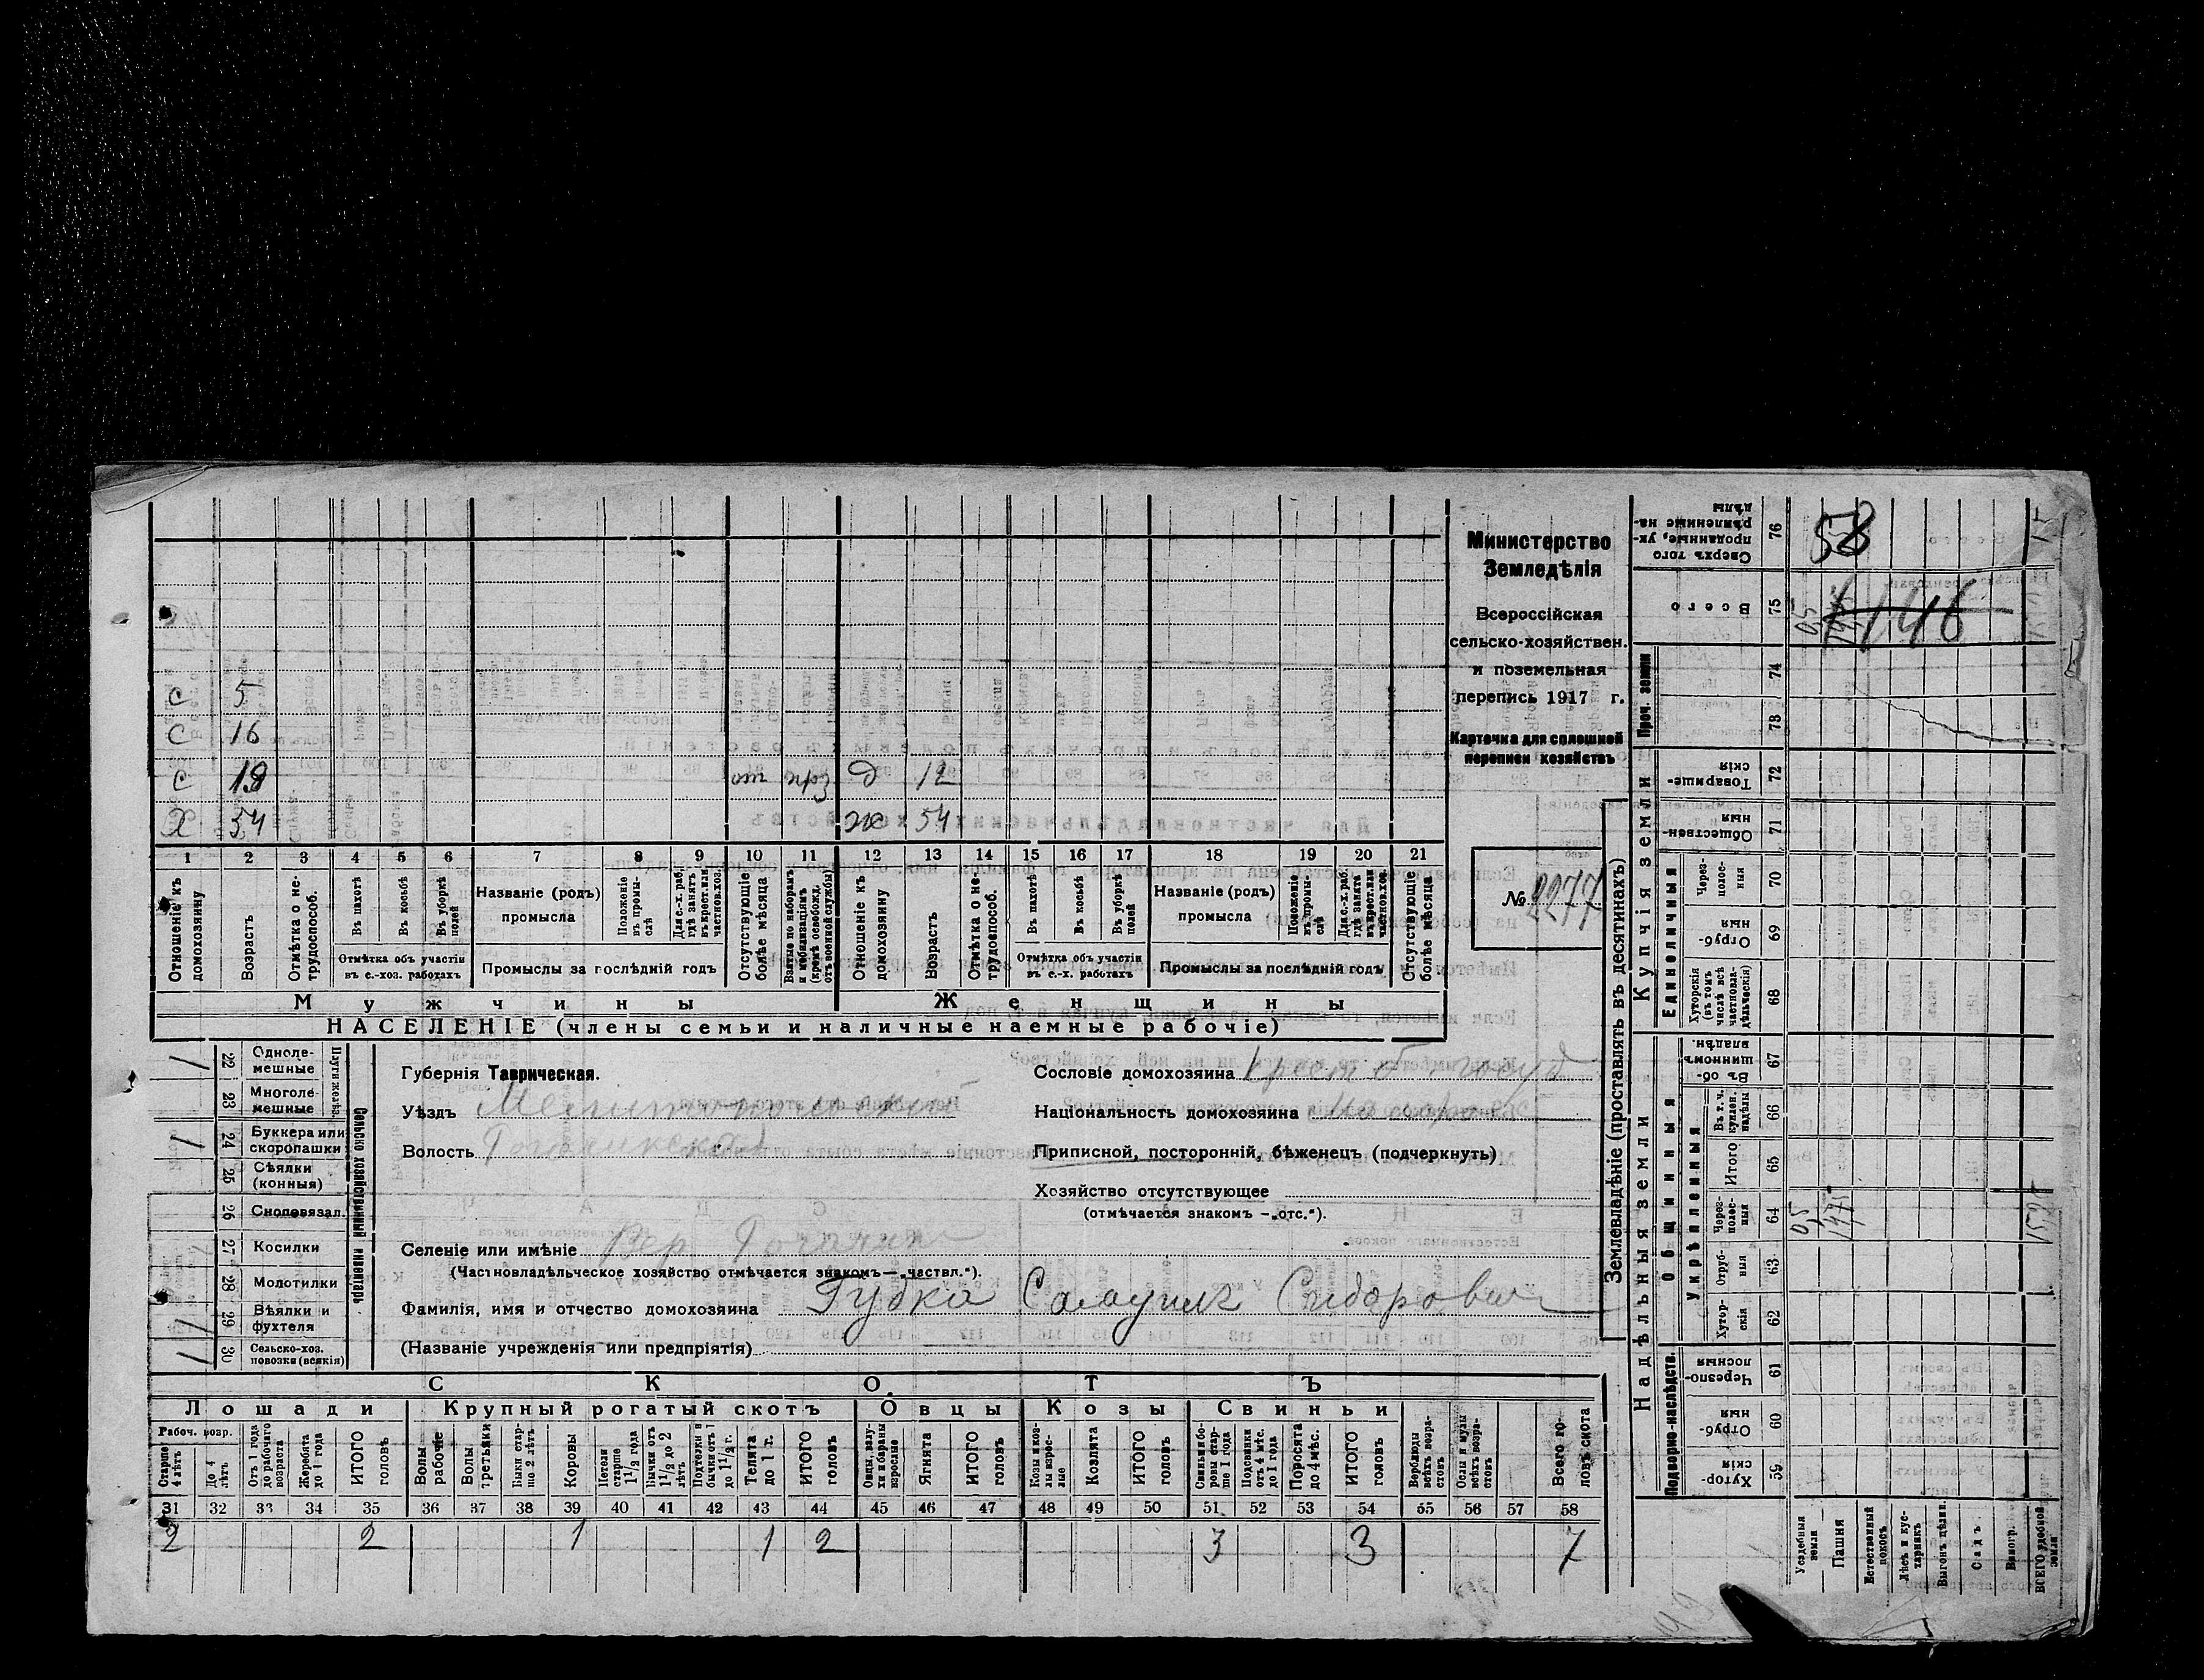 Министерство
Земледѣлія
Всероссійская
сельско-хозяйствен.
и поземельная
перепись 1917 г.
Карточка для сплошной
переписи хозяйствъ
№ 2277
с 5
с 16
с 19 от д 12
Х 54 ж 54
1 2 3 4 5 6 7 8 9 10 11 12 13 14 15 16 17 18 19 20 21
Отношеніе къ домохозяину
Возрастъ
Отмѣтка о не-трудоспособ.
Въ пахотѣ
Въ косьбѣ
Въ уборкѣ полей
Отмѣтка объ участіи въ с.-хоз. работахъ
Названіе (родъ) промысла
Положеніе въ промы-слѣ
Для с.-х. раб. гдѣ занятъ въ крест. или частнов. хоз.
Промыслы за послѣдній годъ
Отсутствующіе болѣе мѣсяца
Взятые по наборамъ и мобилизаціямъ (кромѣ освобожд. отъ военной службы)
Отношеніе къ домохозяину
Возрастъ
Отмѣтка о не-трудоспособ.
Въ пахотѣ
Въ косьбѣ
Въ уборкѣ полей
Отмѣтка объ участіи въ с.-х. работахъ
Названіе (родъ) промысла
Положеніе въ промы-слѣ
Для с.-х. раб. гдѣ занята въ крест. или частнов. хоз.
Промыслы за послѣдній годъ
Отсутствующіе болѣе мѣсяца
Мужчины Женщины
НАСЕЛЕНІЕ (члены семьи и наличные наемные рабочіе)
Сельско хозяйственный инвентарь
1 22 Однолемешные
23 Многолемешные
1 24 Буккера или скоропашки
25 Сѣялки (конныя)
26 Сноповязал.
27 Косилки
28 Молотилки
1 29 Вѣялки и фухтеля
1 30 Сельско-хоз. повозки (всякія)
Губернія Таврическая.
Уѣздъ Мелитопольскій
Волость Рогачикская
Сословіе домохозяина крест б. госуд
Національность домохозяина
Приписной, посторонній, бѣженецъ (подчеркнуть)
Хозяйство отсутствующее
(отмѣчается знакомъ — „отс.“).
Селеніе или имѣніе Вер Рогачик
(Частновладѣльческое хозяйство отмѣчается знакомъ — „частвл.“).
Фамилія, имя и отчество домохозяина Губка Самуилъ Сидорович
(Названіе учрежденія или предпріятія)
СКОТЪ
Лошади Крупный рогатый скотъ Овцы Козы Свиньи
Рабоч. возр.
Старше 4 лѣтъ
До 4 лѣтъ
Отъ 1 года до рабочаго возраста
Жеребята до 1 года
ИТОГО головъ
Волы рабочіе
Волы третьяки
Быки старше 2 лѣтъ
Коровы
Нетели старше 1 1/2 года
Бычки отъ 1 1/2 до 2 лѣтъ
Подтелки и бычки отъ 1 до 1 1/2 г.
Телята до 1 г.
ИТОГО головъ
Овцы, валухи и бараны взрослые
Ягнята
ИТОГО головъ
Козы и козлы взрослые
Козлята
ИТОГО головъ
Свиньи и боровы старше 1 года
Подсвинки отъ 4 мѣс. до 1 года
Поросята до 4 мѣс.
ИТОГО головъ
Верблюды всѣхъ возрастовъ
Ослы и мулы всѣхъ возрастовъ
Всего головъ скота
31 32 33 34 35 36 37 38 39 40 41 42 43 44 45 46 47 48 49 50 51 52 53 54 55 56 57 58
2 2 1 1 2 3 3 7
Землевладѣніе (проставлять въ десятинахъ)
Надѣльныя земли Купчія земли
Сверхъ того проданные, укрѣпленные надѣлы 76 58
Всего 75 0,5 146
Проч. земли 74
73
Товарищескія 72
Общественныя 71
Единоличныя
Черезполосныя 70
Отрубныя 69
Хуторскія (въ томъ числѣ всѣ частновладѣльческія) 68
Общинныя
Въ общинномъ владѣн. 67
Укрѣпленныя
Въ т. ч. куплен. надѣлы 66
Итого 65
Черезполосныя 64 0,5 1475
Отрубныя 63
Хуторскія 62
Подворно-наслѣдств.
Черезполосныя 61
Отрубныя 60
Хуторскія 59
Усадебныя земли
Пашня
Естественный покосъ
Лѣсъ и кустарникъ
Выгонъ, цѣлин.
Садъ
Виногр.
ВСЕГО удобной земли